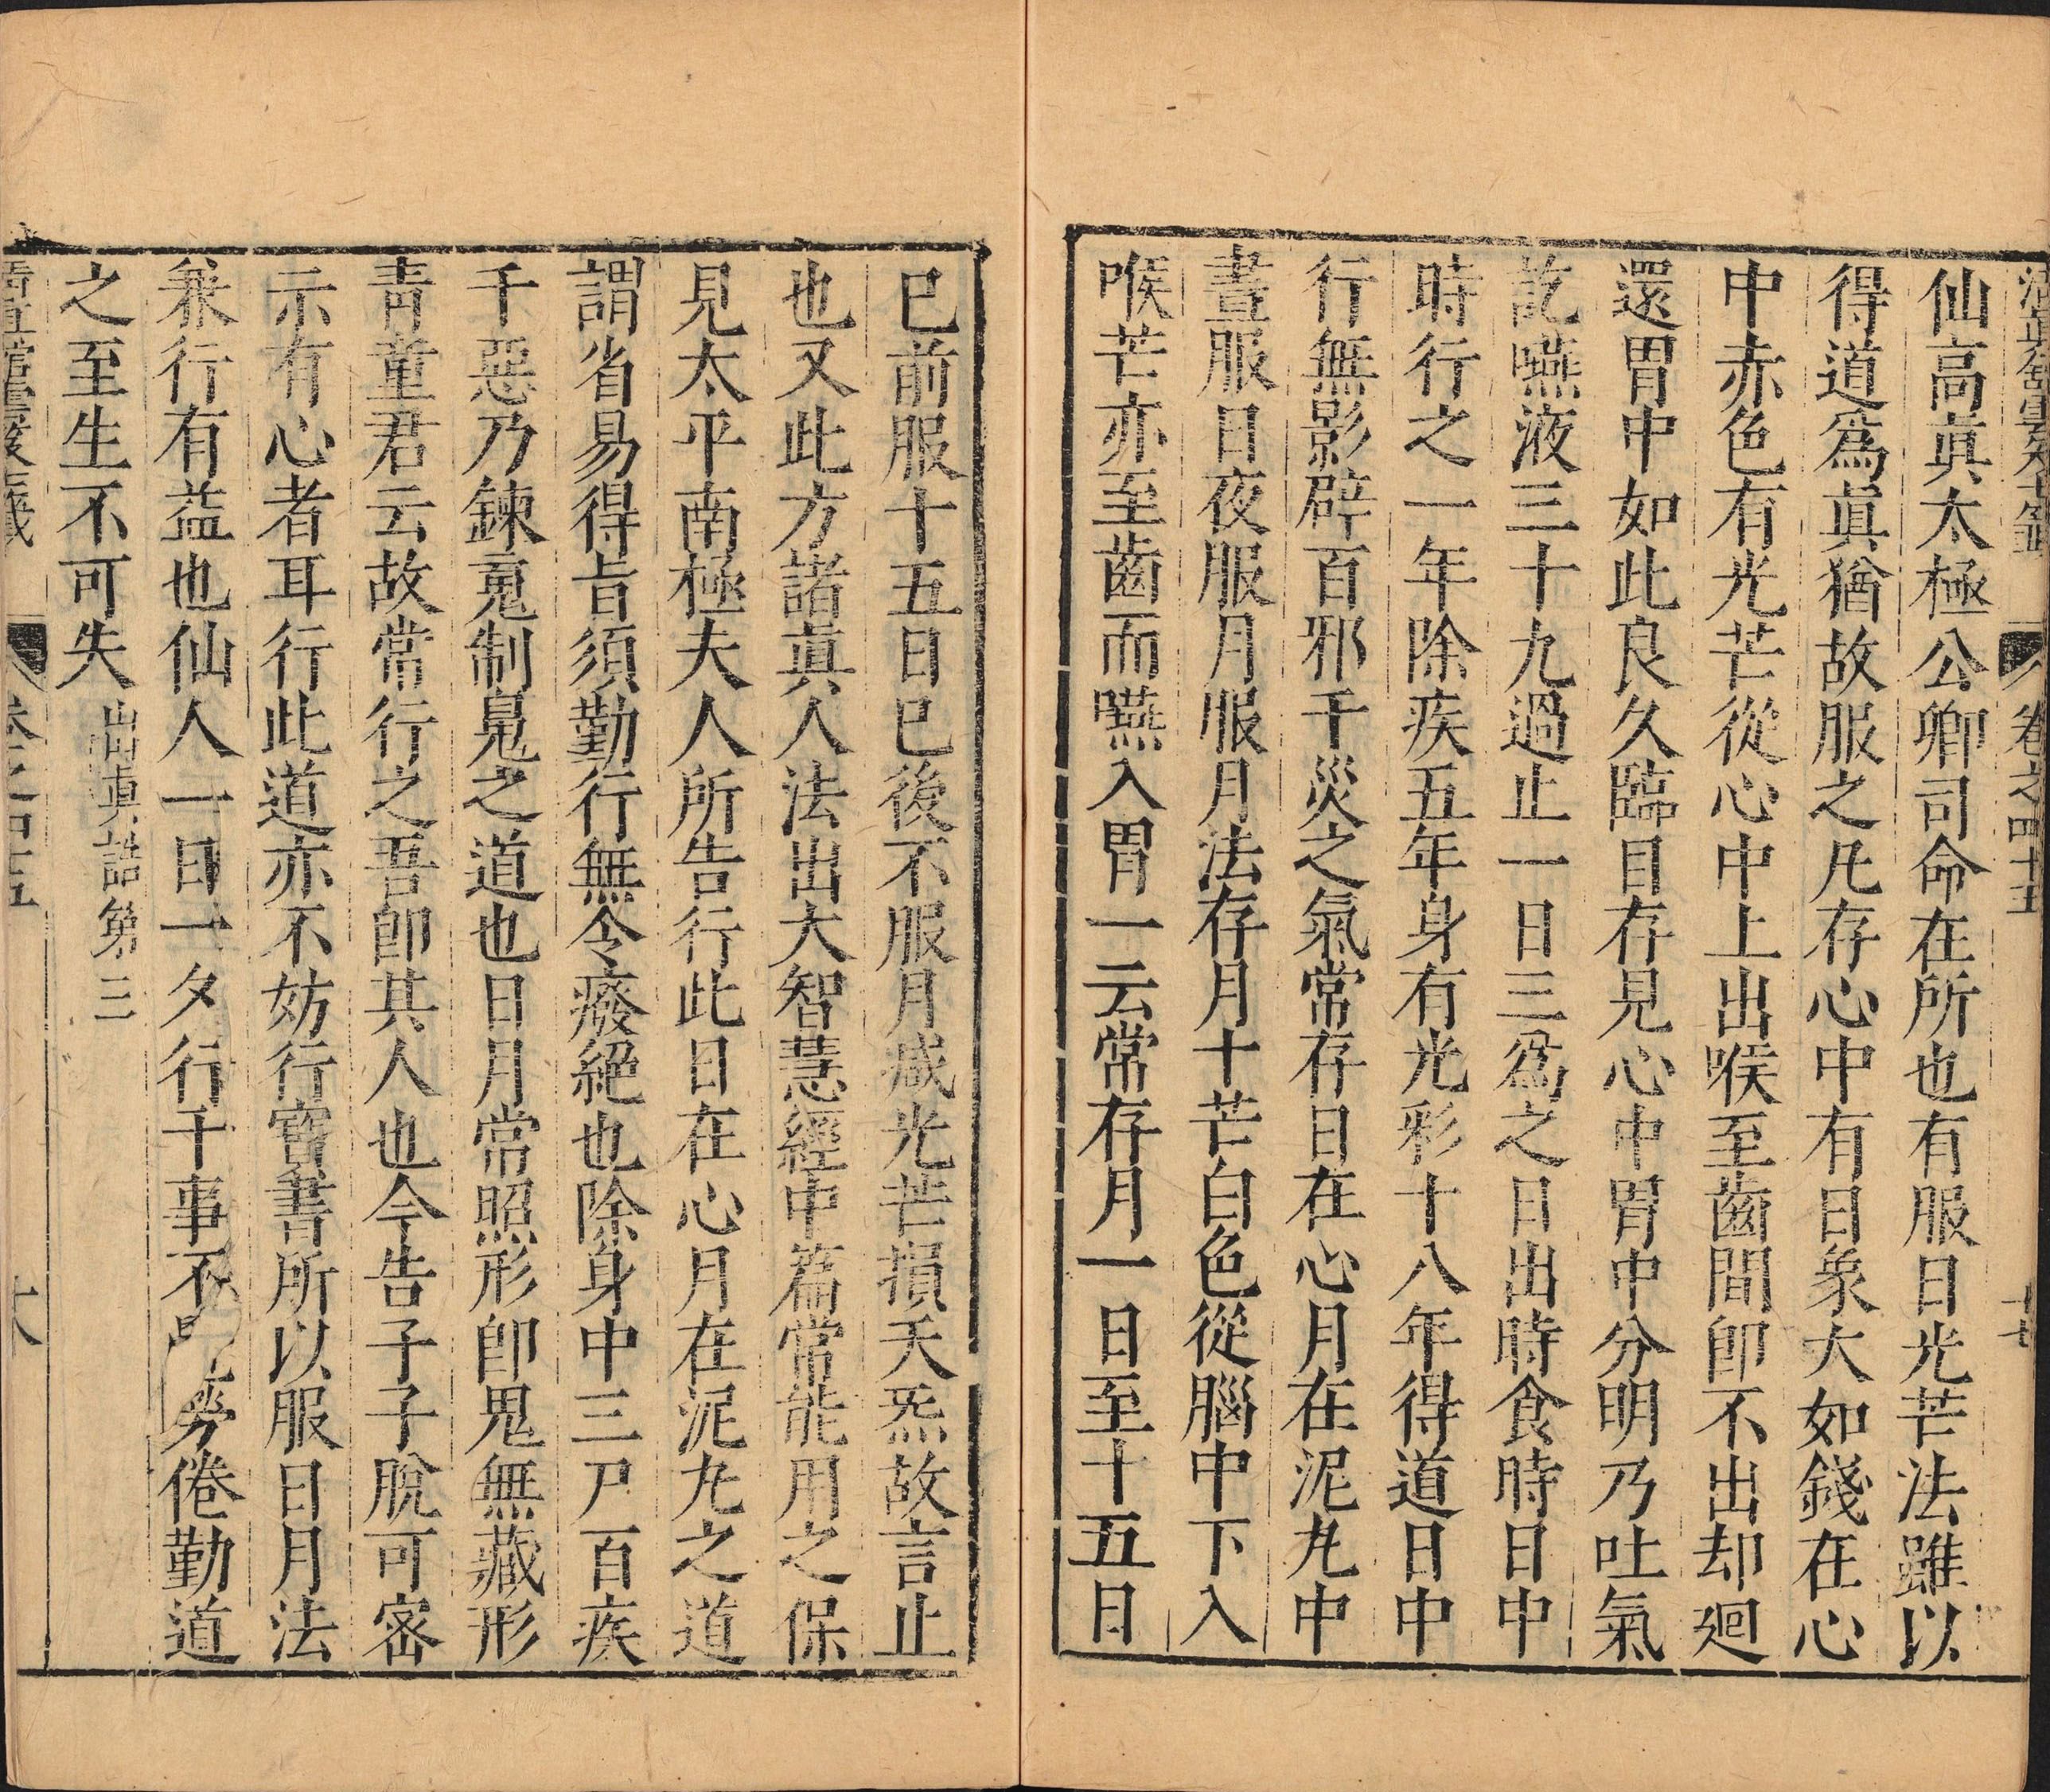 清真舘雲笈七籤 卷之四十五 十七
仙高眞太極公卿司命在所也有服日光芒法雖以
得道爲眞猶故服之凡存心中有日象大如錢在心
中赤色有光芒從心中上出喉至齒間卽不出却廻
還胃中如此良久臨目存見心中胃中分明乃吐氣
訖嚥液三十九過止一日三爲之日出時食時日中
時行之一年除疾五年身有光彩十八年得道日中
行無影辟百邪千災之氣常存日在心月在泥丸中
晝服日夜服月服月法存月十芒白色從腦中下入
喉芒亦至齒而嚥入胃一云常存月一日至十五日
巳前服十五日巳後不服月减光芒損天炁故言止
也又此方諸眞人法出大智慧經中篇常能用之保
見太平南極夫人所告行此日在心月在泥丸之道
謂省易得旨須勤行無令癈絕也除身中三尸百疾
千惡乃鍊䰟制鬽之道也日月常照形卽鬼無藏形
靑童君云故常行之吾卽其人也今告子子脫可密
示有心者耳行此道亦不妨行寶書所以服日月法
兼行有益也仙人一日一夕行千事不 勞倦勤道
之至生不可失 出眞誥第三
清眞舘雲笈七籤 卷之四十五 十八